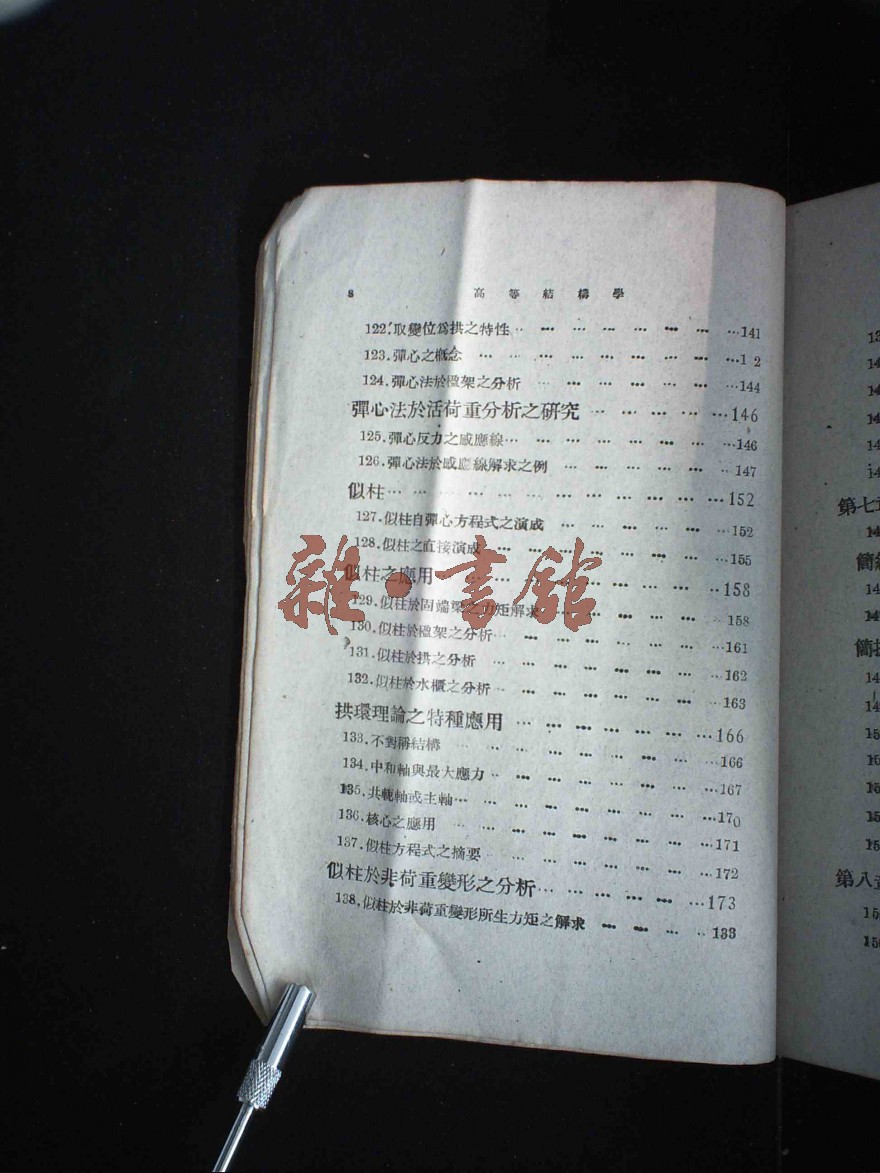 8 高等結構學
122. 取變位爲拱之特性 … 141
123. 彈心之概念 … 1 2
124. 彈心法於框架之分析 … 144
彈心法於活荷重分析之研究 … 146
125. 彈心反力之感應線 … 146
126. 彈心法於感應線解求之例 … 147
似柱 … 152
127. 似柱自彈心方程式之演成 … 152
128. 似柱之直接演成 … 155
似柱之應用 … 158
129. 似柱於固端梁之力矩解求 … 158
130. 似柱於框架之分析 … 161
131. 似柱於拱之分析 … 162
132. 似柱於水櫃之分析 … 163
拱環理論之特種應用 … 166
133. 不對稱結構 … 166
134. 中和軸與最大應力 … 167
135. 共軛軸或主軸 … 170
136. 核心之應用 … 171
137. 似柱方程式之摘要 … 172
似柱於非荷重變形之分析 … 173
138. 似柱於非荷重變形所生力矩之解求 … 133
雜·書館
第七章
簡
簡
第八章